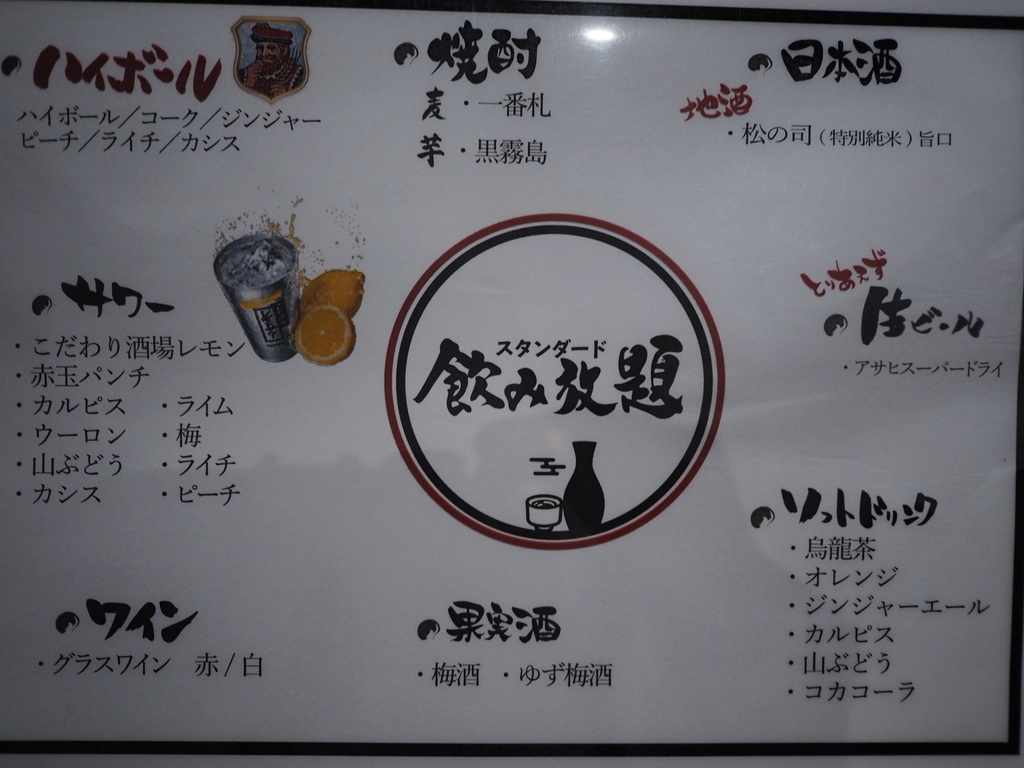 ハイボール
ハイボール／コーク／ジンジャー
ピーチ／ライチ／カシス
焼酎
麦 ・一番札
芋 ・黒霧島
日本酒
地酒
・松の司（特別純米）旨口
サワー
・こだわり酒場レモン
・赤玉パンチ
・カルピス ・ライム
・ウーロン ・梅
・山ぶどう ・ライチ
・カシス ・ピーチ
スタンダード
飲み放題
とりあえず
生ビール
・アサヒスーパードライ
ソフトドリンク
・烏龍茶
・オレンジ
・ジンジャーエール
・カルピス
・山ぶどう
・コカコーラ
ワイン
・グラスワイン 赤/白
果実酒
・梅酒 ・ゆず梅酒